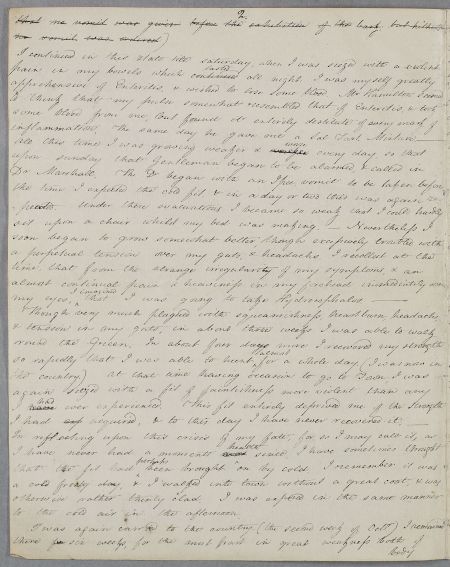 2.
that no vomit was given before the exhibition of the bark, but hitherto
no vomit was ordered)
I continued in this state till saturday, when I was seized with a violent
pain in my bowels which continued lasted all night. I was myself greatly
apprehensive of Enteritis, & wished to lose some blood. Mr Hamilton seemed
to think that my pulse somewhat resembled that of Enteritis, & took
some blood from me, but found it entirely destitute of every mark of
inflammation. The same day he gave me a Sal Tart Mixture
All this time I was growing weaker & weaker every day so that
upon sunday that Gentleman began to be alarmed & called in
Dr. Marshall. The Dr began with an Ipec. vomit to be taken before
the time I expected the cold fit & in a day or two this was again
repeated. Under these evacuations I became so weak that I could hardly
sit upon a chair whilst my bed was making. — Nevertheless I
soon began to grow somewhat better though exceedingly troubled with
a perpetual tension over my guts, & headachs. I recollect at the
time, that from the strange irregularity of my symptoms, & an
almost continual pain & heaviness in my forehead immediately over
my eyes, I imagined that I was going to take Hydrocephalus
Though very much plagued with squeamishness heartburn, headachs,
& tension in my guts, in about three weeks I was able to walk
round the Green. In about four days more I recovered my strength
so rapidly that I was able to be out almost for a whole day (I was now in
the country). At that time having occasion to go to Town, I was
again seized with a fit of faintishness more violent than any I
had ever experienced. This fit entirely deprived me of the strength
I had acquired, & to this day I have never recovered it.
In reflecting upon this crisis of my fate, for so I may call it, as
I have never had a moments health since, I have sometimes thought
that the fit had been brought on by cold. I remember it was
a cold frosty day, & I walked into town without a great coat, & was
otherwise rather thinly clad. I was exposed in the same manner
to the cold air in the afternoon.
I was again carried to the country (the second week of Octr) I remained
there six weeks, for the most part in great weakness both of
body